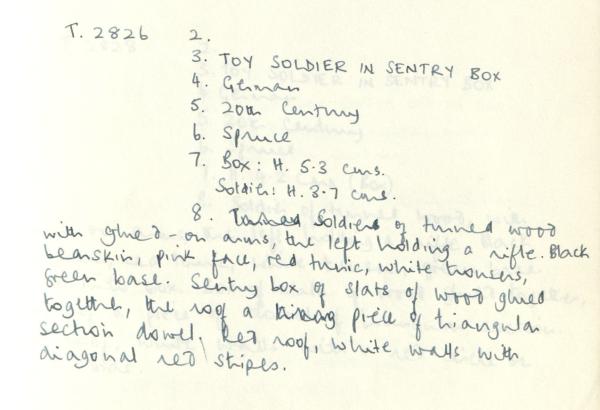 T. 2826 2.
3. TOY SOLDIER IN SENTRY BOX
4. German
5. 20th Century
6. Spruce
7. Box: H. 5.3 cms.
Soldier: H. 3.7 cms.
8. Turned Soldier of turned wood
with glued-on arms, the left holding a rifle. Black
bearskin, pink face, red tunic, white trousers,
green base. Sentry box of slats of wood glued
together, the roof a piece of triangular
section dowel. Red roof, white walls with
diagonal red stripes.